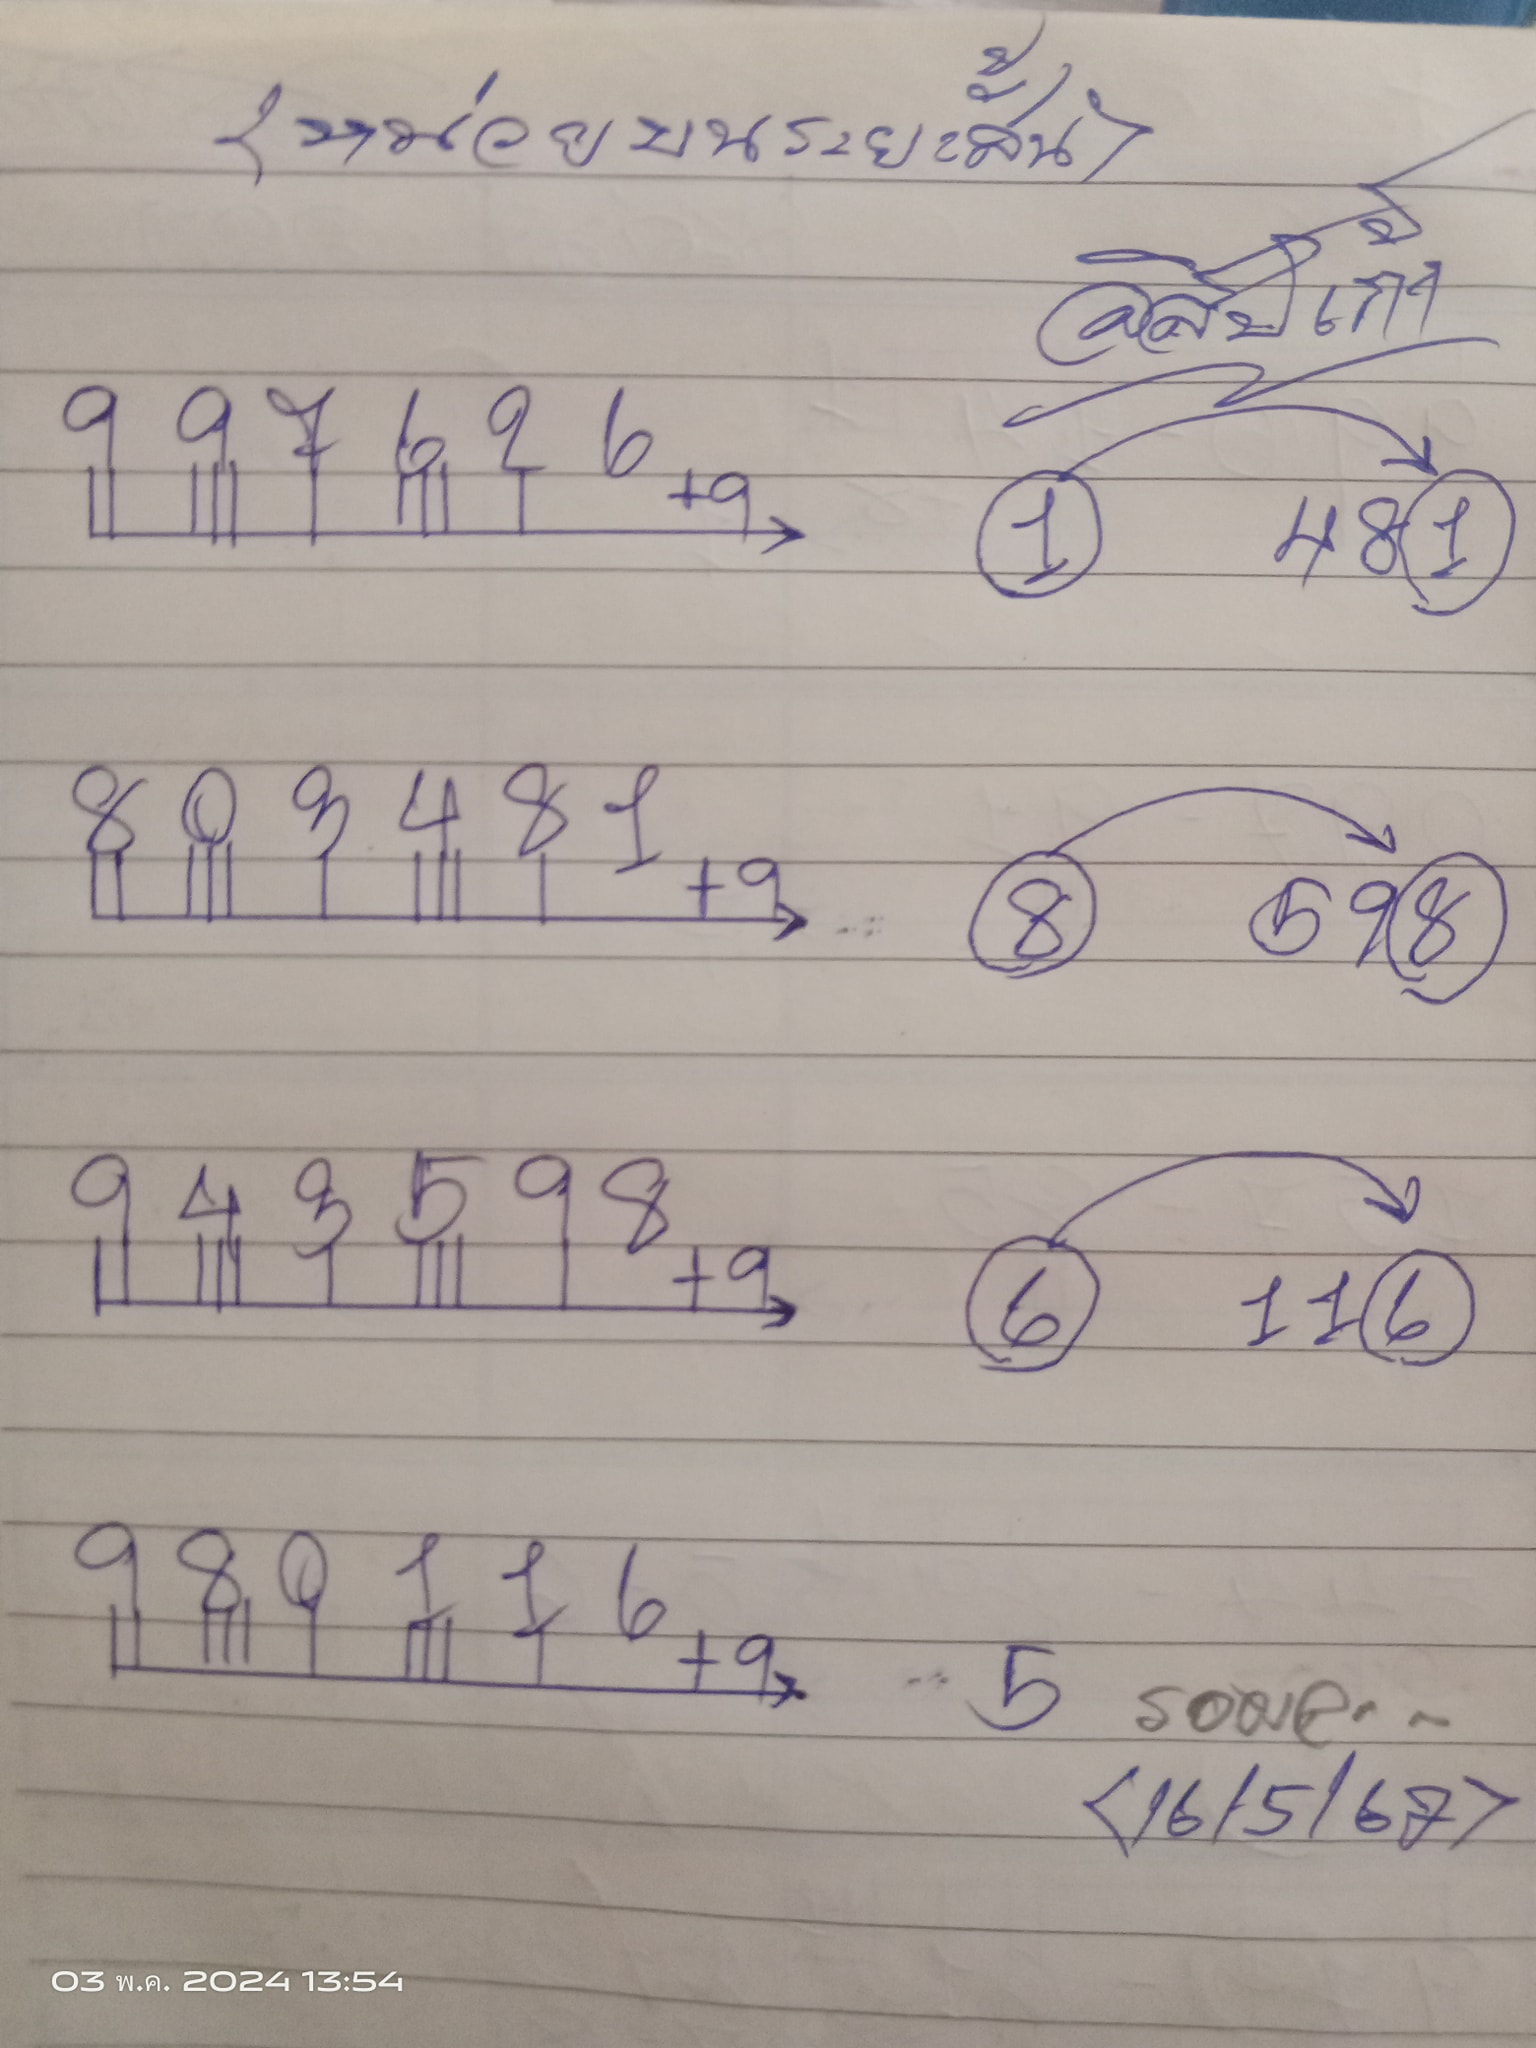 <หน่วยบนระยะสั้น>
สิบเก้า
9 9 7 6 2 6 +9 1 481
8 0 3 4 8 1 +9 8 598
9 4 3 5 9 8 +9 6 116
9 8 0 1 1 6 +9 5
<16/5/67>
03 พ.ค. 2024 13:54